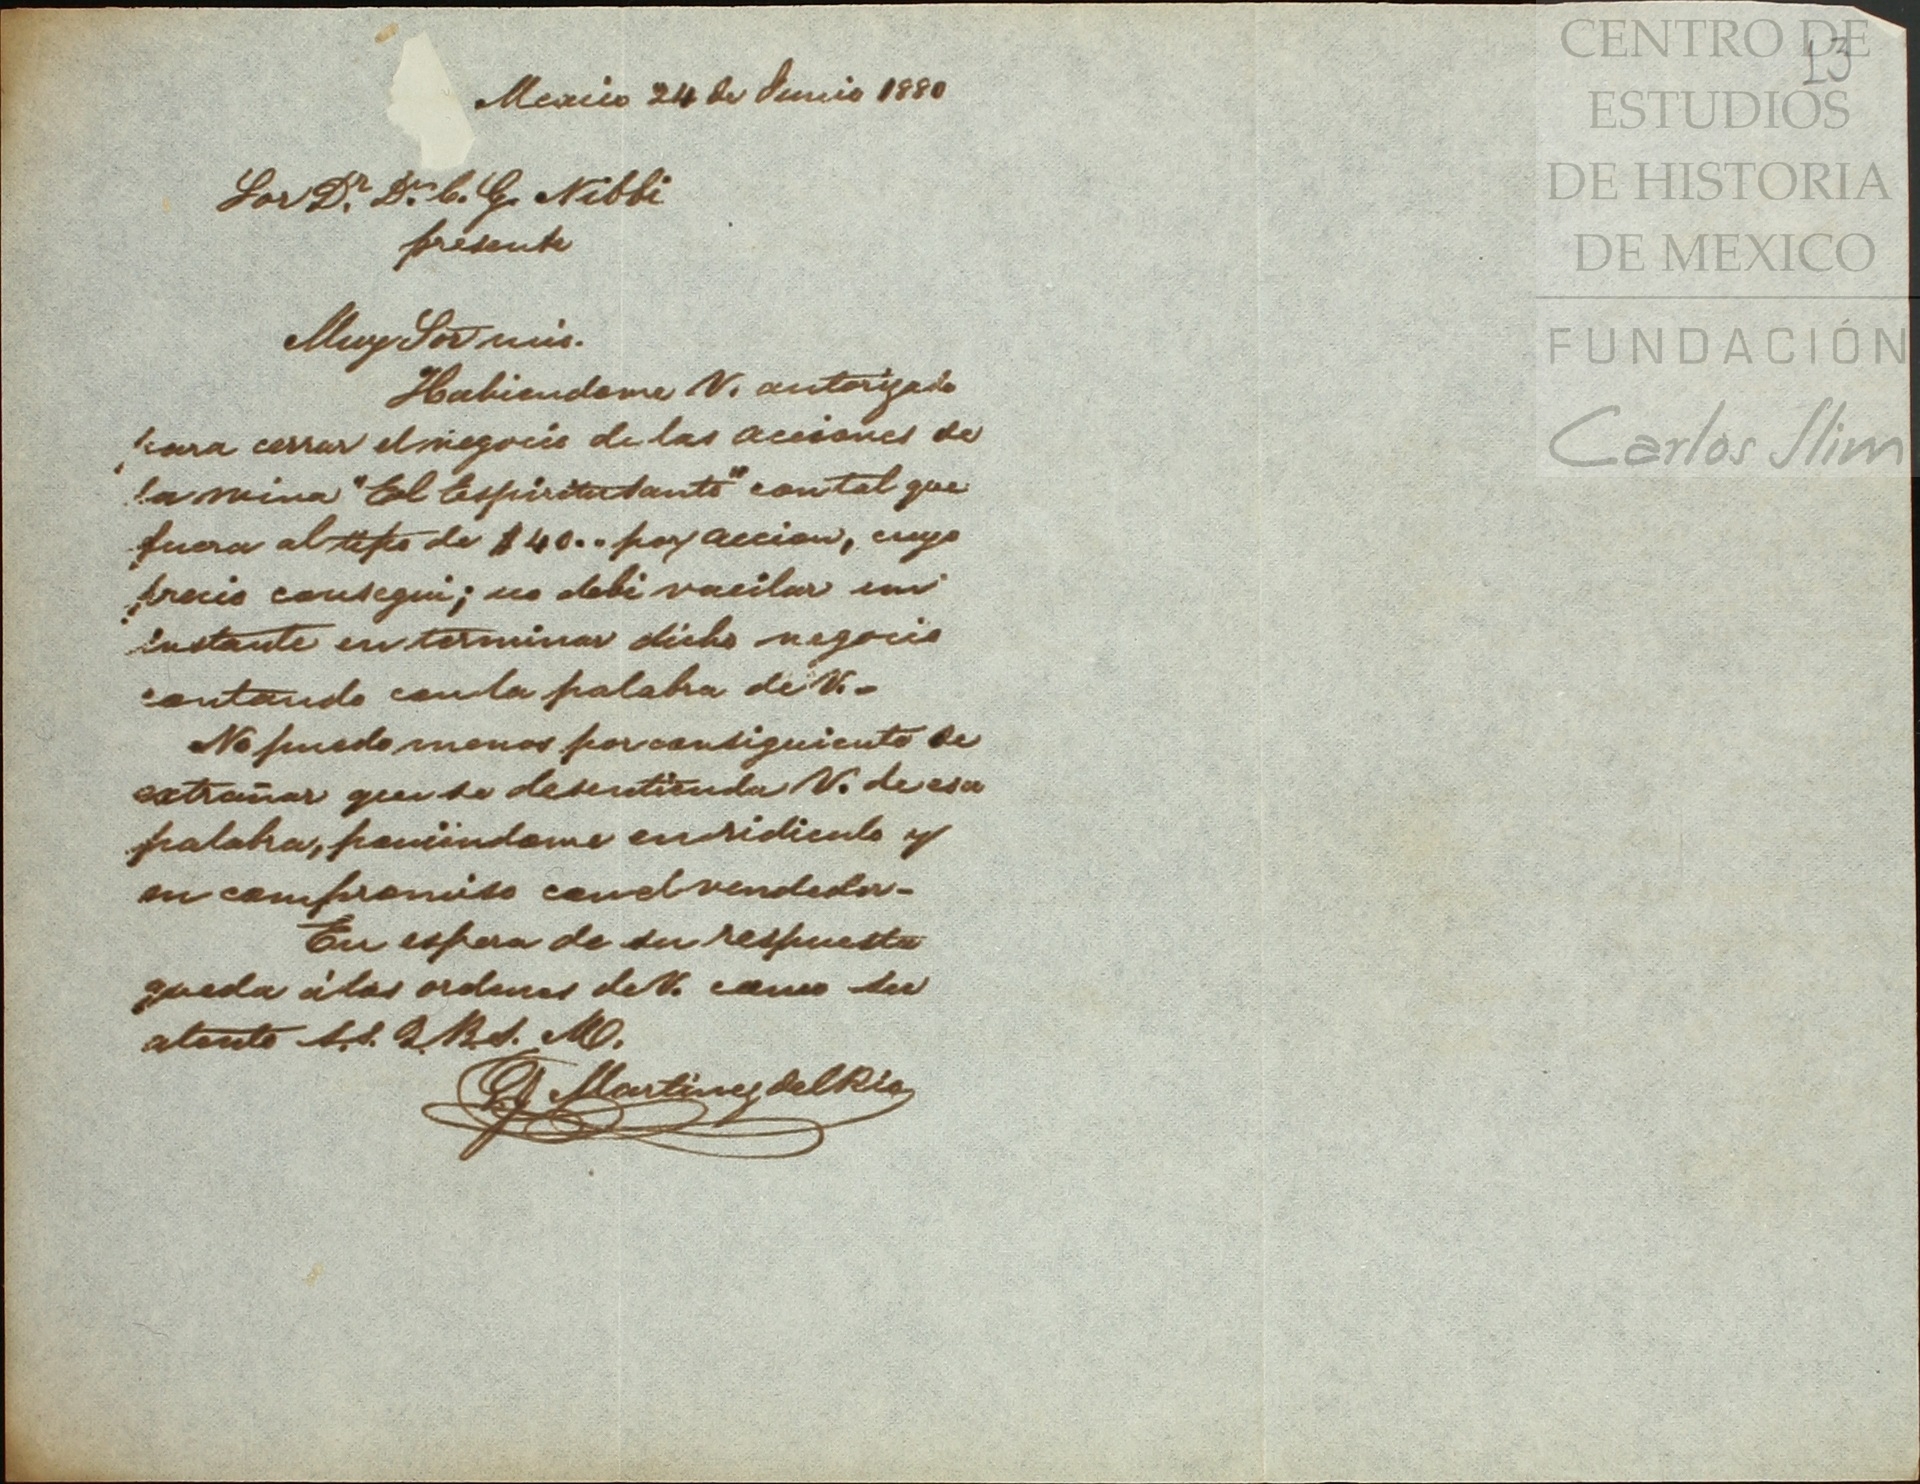 Mexico 24 de Junio 1880
Sor Dr. Dn. C. G. Nibbi
presente
Muy Sor mio.
Habiendome V. autorizado
para cerrar el negocio de las acciones de
la mina "El Espiritu Santo" con tal que
fuera al tipo de $40.. por accion, cuyo
precio consegui; no debi vacilar un
instante en terminar dicho negocio
contando con la palabra de V.-
No puedo menos por consiguiente de
extrañar que se desentienda V. de esa
palabra, poniéndome en ridiculo y
en compromiso con el vendedor-
En espera de su respuesta
queda á las ordenes de V. como su
atento S.S. Q.B.S.M.
Martinez del Rio
13
CENTRO DE
ESTUDIOS
DE HISTORIA
DE MEXICO
FUNDACIÓN
Carlos Slim